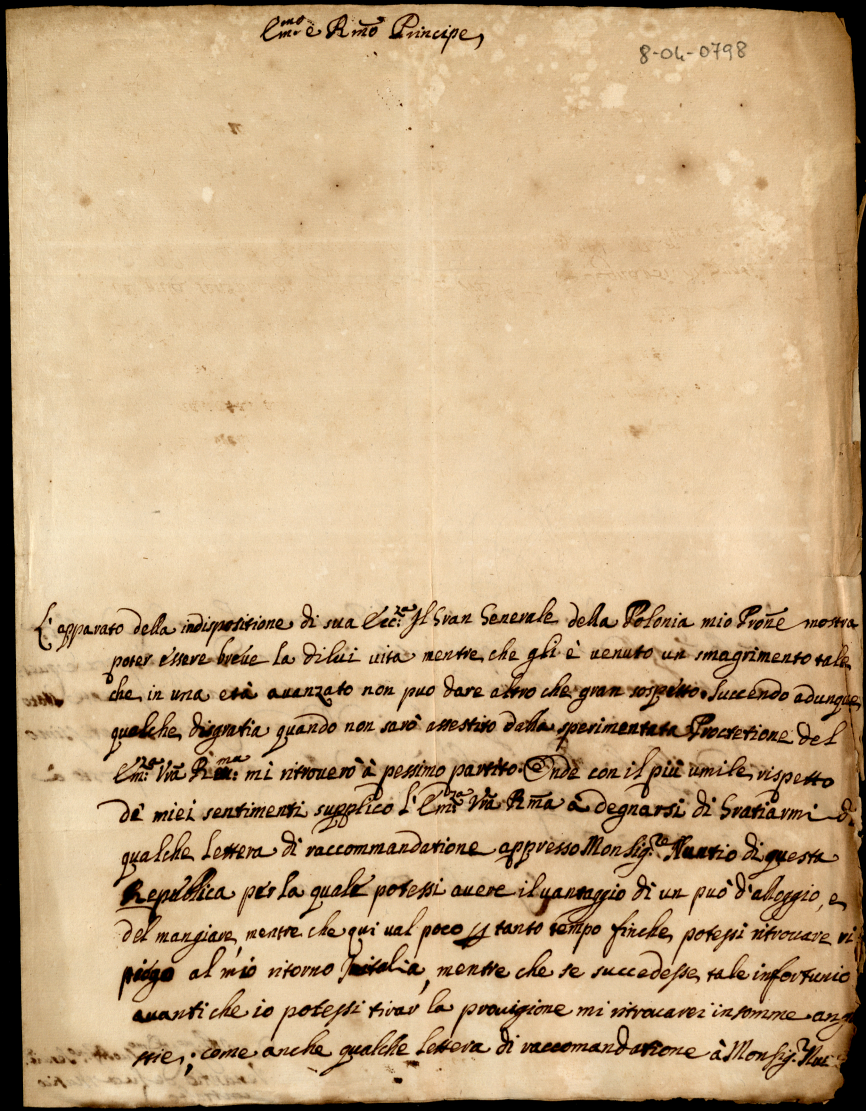 Em.mo e R.mo Principe,
8-04-0798
L'apparato della indispositione di sua Ecc.za Il Gran Generale della Polonia mio Prone mostra
poter essere breve la dilui vita mentre che gli è venuto un smagrimento tale
che in una età avanzato non puo dare altro che gran sospetto. Succendo adunque
qualche disgratia quando non sarò assestito dalla sperimentata Proctetione del
Em.za Vra R.ma: mi ritroverò à pessimo partito. Onde con il più umile rispetto
de miei sentimenti supplico l'Em.za Vra Rma à degnarsi di Gratiarmi di
qualche lettera di raccommandatione appresso Monsig.re Nuntio di questa
Republica per la quale potessi avere il vantaggio di un puó d'alloggio, e
del mangiare, mentre che qui val poco p tanto tempo finche potessi ritrovare ri
piego al mio ritorno Initalia, mentre che se succedesse tale infortunio
avanti che io potessi tirar la provigione mi ritrovarei insomme angu
stie; come anche qualche lettera di raccomandatione à Monsig.r Nun